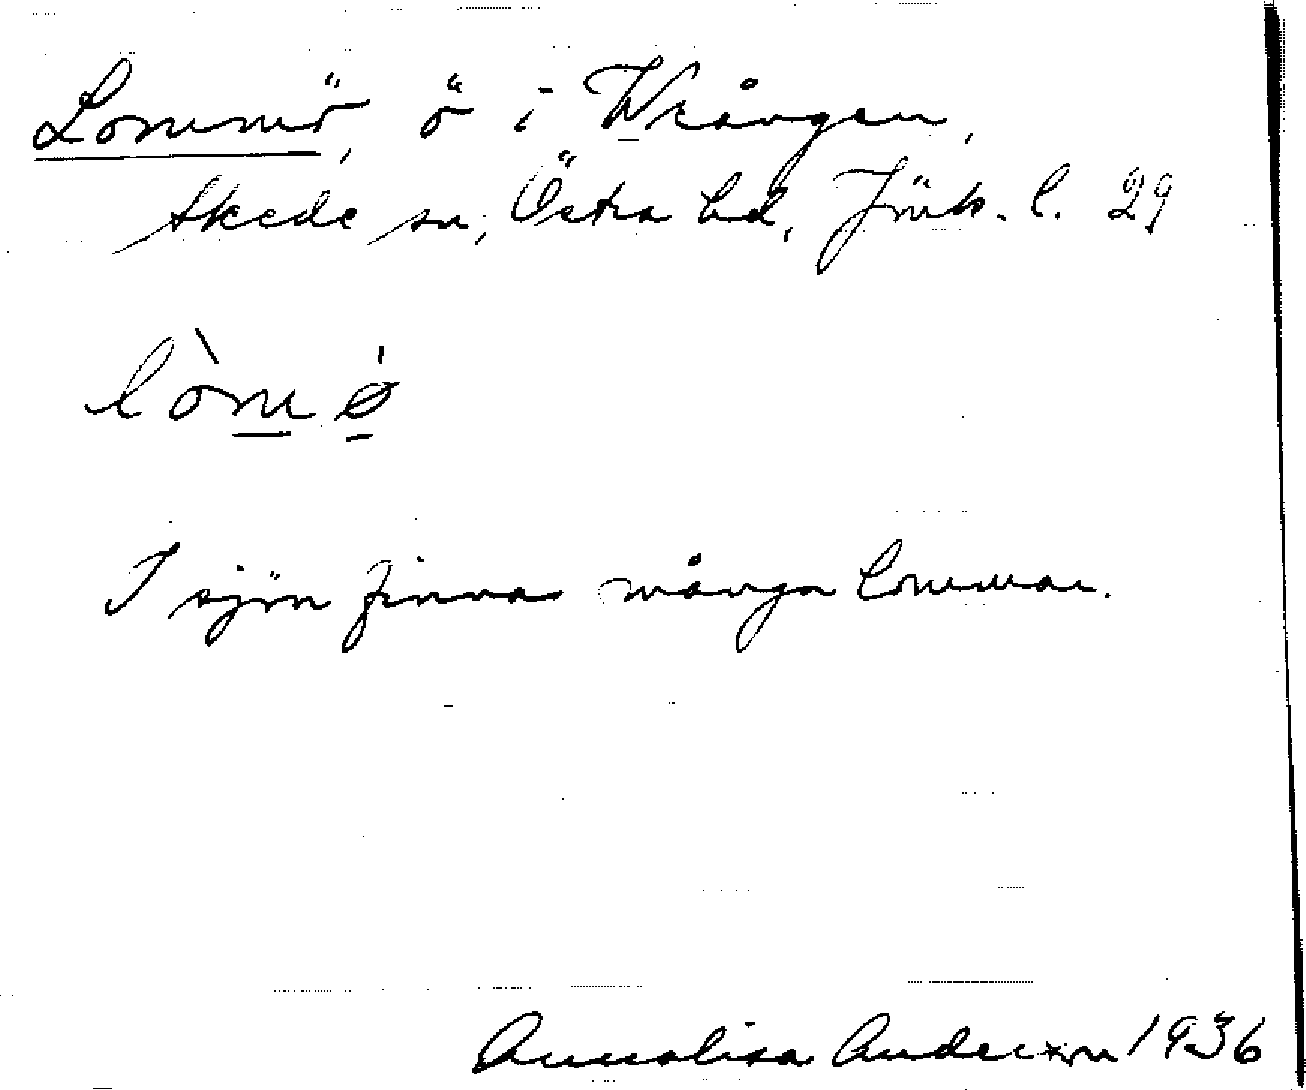 Lommö, ö i Wrången,
Skede sn, Östra hd, Jönk. l. 29
lòmǿ
I sjön finnas många lommar.
Annalisa Anderson 1936